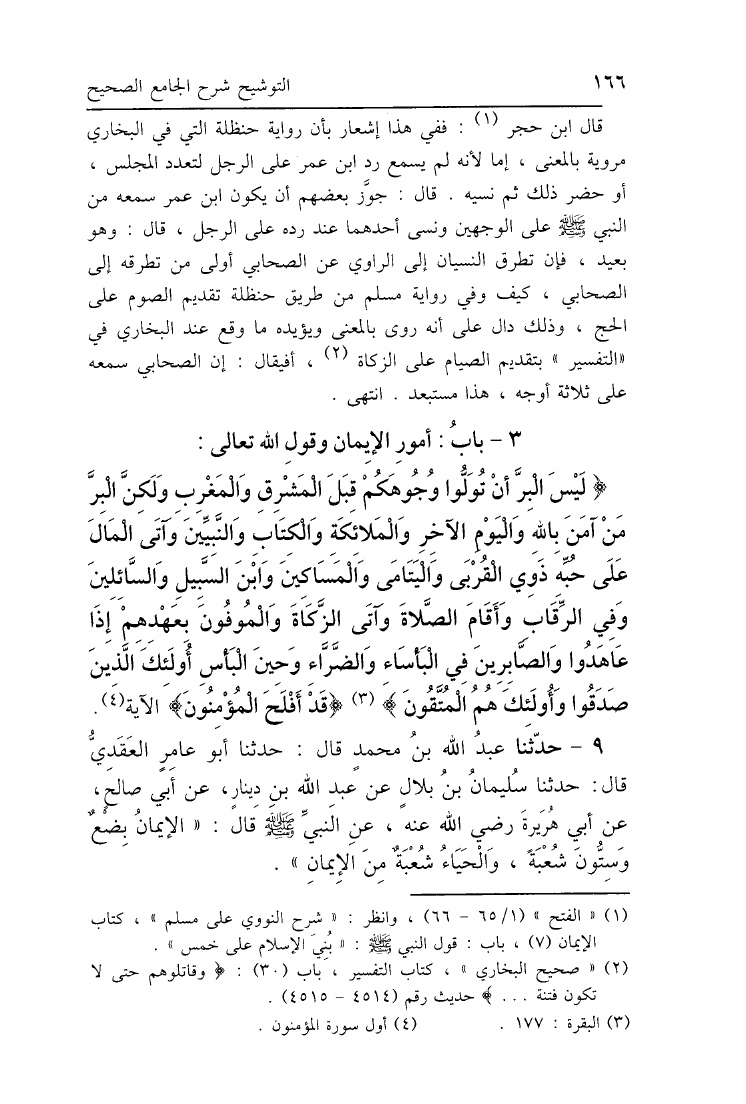 ١٦٦ التوشيح شرح الجامع الصحيح
قال ابن حجر (١) : ففي هذا إشعار بأن رواية حنظلة التي في البخاري
مروية بالمعنى ، إما لأنه لم يسمع رد ابن عمر على الرجل لتعدد المجلس ،
أو حضر ذلك ثم نسيه . قال : جوَّز بعضهم أن يكون ابن عمر سمعه من
النبي ﷺ على الوجهين ونسى أحدهما عند رده على الرجل ، قال : وهو
بعيد ، فإن تطرق النسيان إلى الراوي عن الصحابي أولى من تطرقه إلى
الصحابي ، كيف وفي رواية مسلم من طريق حنظلة تقديم الصوم على
الحج ، وذلك دال على أنه روى بالمعنى ويؤيده ما وقع عند البخاري في
«التفسير » بتقديم الصيام على الزكاة (٢) ، أفيقال : إن الصحابي سمعه
على ثلاثة أوجه ، هذا مستبعد . انتهى .
٣ – بابُ : أمورِ الإيمان وقولِ الله تعالى :
﴿ لَيْسَ الْبِرَّ أَنْ تُوَلُّوا وُجُوهَكُمْ قِبَلَ الْمَشْرِقِ وَالْمَغْرِبِ وَلَكِنَّ الْبِرَّ
مَنْ آمَنَ بِاللهِ وَالْيَوْمِ الآخِرِ وَالْمَلائِكَةِ وَالْكِتَابِ وَالنَّبِيِّينَ وَآتَى الْمَالَ
عَلَى حُبِّهِ ذَوِي الْقُرْبَى وَالْيَتَامَى وَالْمَسَاكِينَ وَابْنَ السَّبِيلِ وَالسَّائِلِينَ
وَفِي الرِّقَابِ وَأَقَامَ الصَّلاةَ وَآتَى الزَّكَاةَ وَالْمُوفُونَ بِعَهْدِهِمْ إِذَا
عَاهَدُوا وَالصَّابِرِينَ فِي الْبَأْسَاءِ وَالضَّرَّاءِ وَحِينَ الْبَأْسِ أُولَئِكَ الَّذِينَ
صَدَقُوا وَأُولَئِكَ هُمُ الْمُتَّقُونَ ﴾ (٣) ﴿قَدْ أَفْلَحَ الْمُؤْمِنُونَ﴾ الآية(٤).
٩ – حدّثنا عبدُ الله بنُ محمدٍ قال : حدثنا أبو عامرٍ العَقَدِيُّ
قال: حدثنا سُليمانُ بنُ بلالٍ عن عبدِ الله بنِ دِينارٍ، عن أبي صالحٍ،
عن أبي هُرَيرةَ رضي الله عنه ، عنِ النبيِّ ﷺ قال : « الإيمانُ بِضْعٌ
وَسِتُّونَ شُعْبَةً ، وَالْحَيَاءُ شُعْبَةٌ مِنَ الإِيمَانِ » .
(١) « الفتح » (١/ ٦٥ – ٦٦) ، وانظر : « شرح النووي على مسلم » ، كتاب
الإيمان (٧) ، باب : قول النبي ﷺ : « بُنِيَ الإسلام على خمس » .
(٢) « صحيح البخاري » ، كتاب التفسير ، باب (٣٠) : ﴿ وقاتلوهم حتى لا
تكون فتنة ... ﴾ حديث رقم (٤٥١٤ – ٤٥١٥) .
(٣) البقرة : ١٧٧ . (٤) أول سورة المؤمنون .